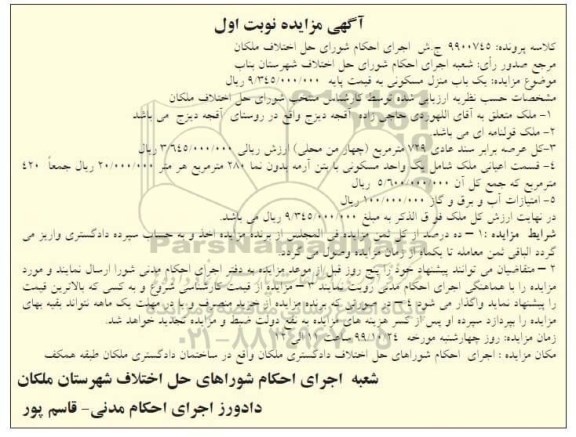 آگهی مزایده نوبت اول
کلاسه پرونده: ۹۹۰۰۷۴۵ ج.ش اجرای احکام شورای حل اختلاف ملکان
مرجع صدور رأی: شعبه اجرای احکام شورای حل اختلاف شهرستان بناب
موضوع مزایده: یک باب منزل مسکونی به قیمت پایه ۹/۳۴۵/۰۰۰/۰۰۰ ریال
مشخصات حسب نظریه ارزیابی شده توسط کارشناس منتخب شورای حل اختلاف ملکان
۱- ملک متعلق به آقای اللهوردی حاجی زاده آقچه دیزج واقع در روستای آقچه دیزج می باشد
۲- ملک قولنامه ای می باشد
۳-کل عرصه برابر سند عادی ۷۲۹ مترمربع (چهار من محلی) ارزش ریالی ۳/۶۴۵/۰۰۰/۰۰۰ ریال
۴- قسمت اعیانی ملک شامل یک واحد مسکونی با بتن آرمه بدون نما ۲۸۰ مترمربع هر متر ۲۰/۰۰۰/۰۰۰ ریال جمعاً ۴۲۰
مترمربع که جمع کل آن ۵/۶۰۰/۰۰۰/۰۰۰ ریال
۵- امتیازات آب و برق و گاز ۱۰۰/۰۰۰/۰۰۰ ریال
در نهایت ارزش کل ملک فوق الذکر به مبلغ ۹/۳۴۵/۰۰۰/۰۰۰ ریال می باشد.
شرایط مزایده : ۱ – ده درصد از کل ثمن مزایده فی المجلس از برنده مزایده اخذ و به حساب سپرده دادگستری واریز می
گردد الباقی ثمن معامله تا یکماه از زمان مزایده وصول می گردد.
۲ – متقاضیان می توانند پیشنهاد خود را پنج روز قبل از موعد مزایده به دفتر اجرای احکام مدنی شورا ارسال نمایند و مورد
مزایده را با هماهنگی اجرای احکام مدنی رویت نمایند ۳ – مزایده از قیمت کارشناسی شروع و به کسی که بالاترین قیمت
را پیشنهاد نماید واگذار می شود ۴ – در صورتی که برنده مزایده از خرید منصرف و یا در مهلت یک ماهه نتواند بقیه بهای
مزایده را بپردازد سپرده او پس از کسر هزینه های مزایده به نفع دولت ضبط و مزایده تجدید خواهد شد.
زمان مزایده: روز چهارشنبه مورخه ۹۹/۱۰/۲۴ ساعت ۱۱ الی ۱۲
مکان مزایده : اجرای احکام شوراهای حل اختلاف دادگستری ملکان واقع در ساختمان دادگستری ملکان طبقه همکف
شعبه اجرای احکام شوراهای حل اختلاف شهرستان ملکان
دادورز اجرای احکام مدنی- قاسم پور
ParsNamadData
پایگاه اطلاع رسانی مناقصه و مزایده
۰۲۱-۸۸۳۴۹۶۷۰-۵